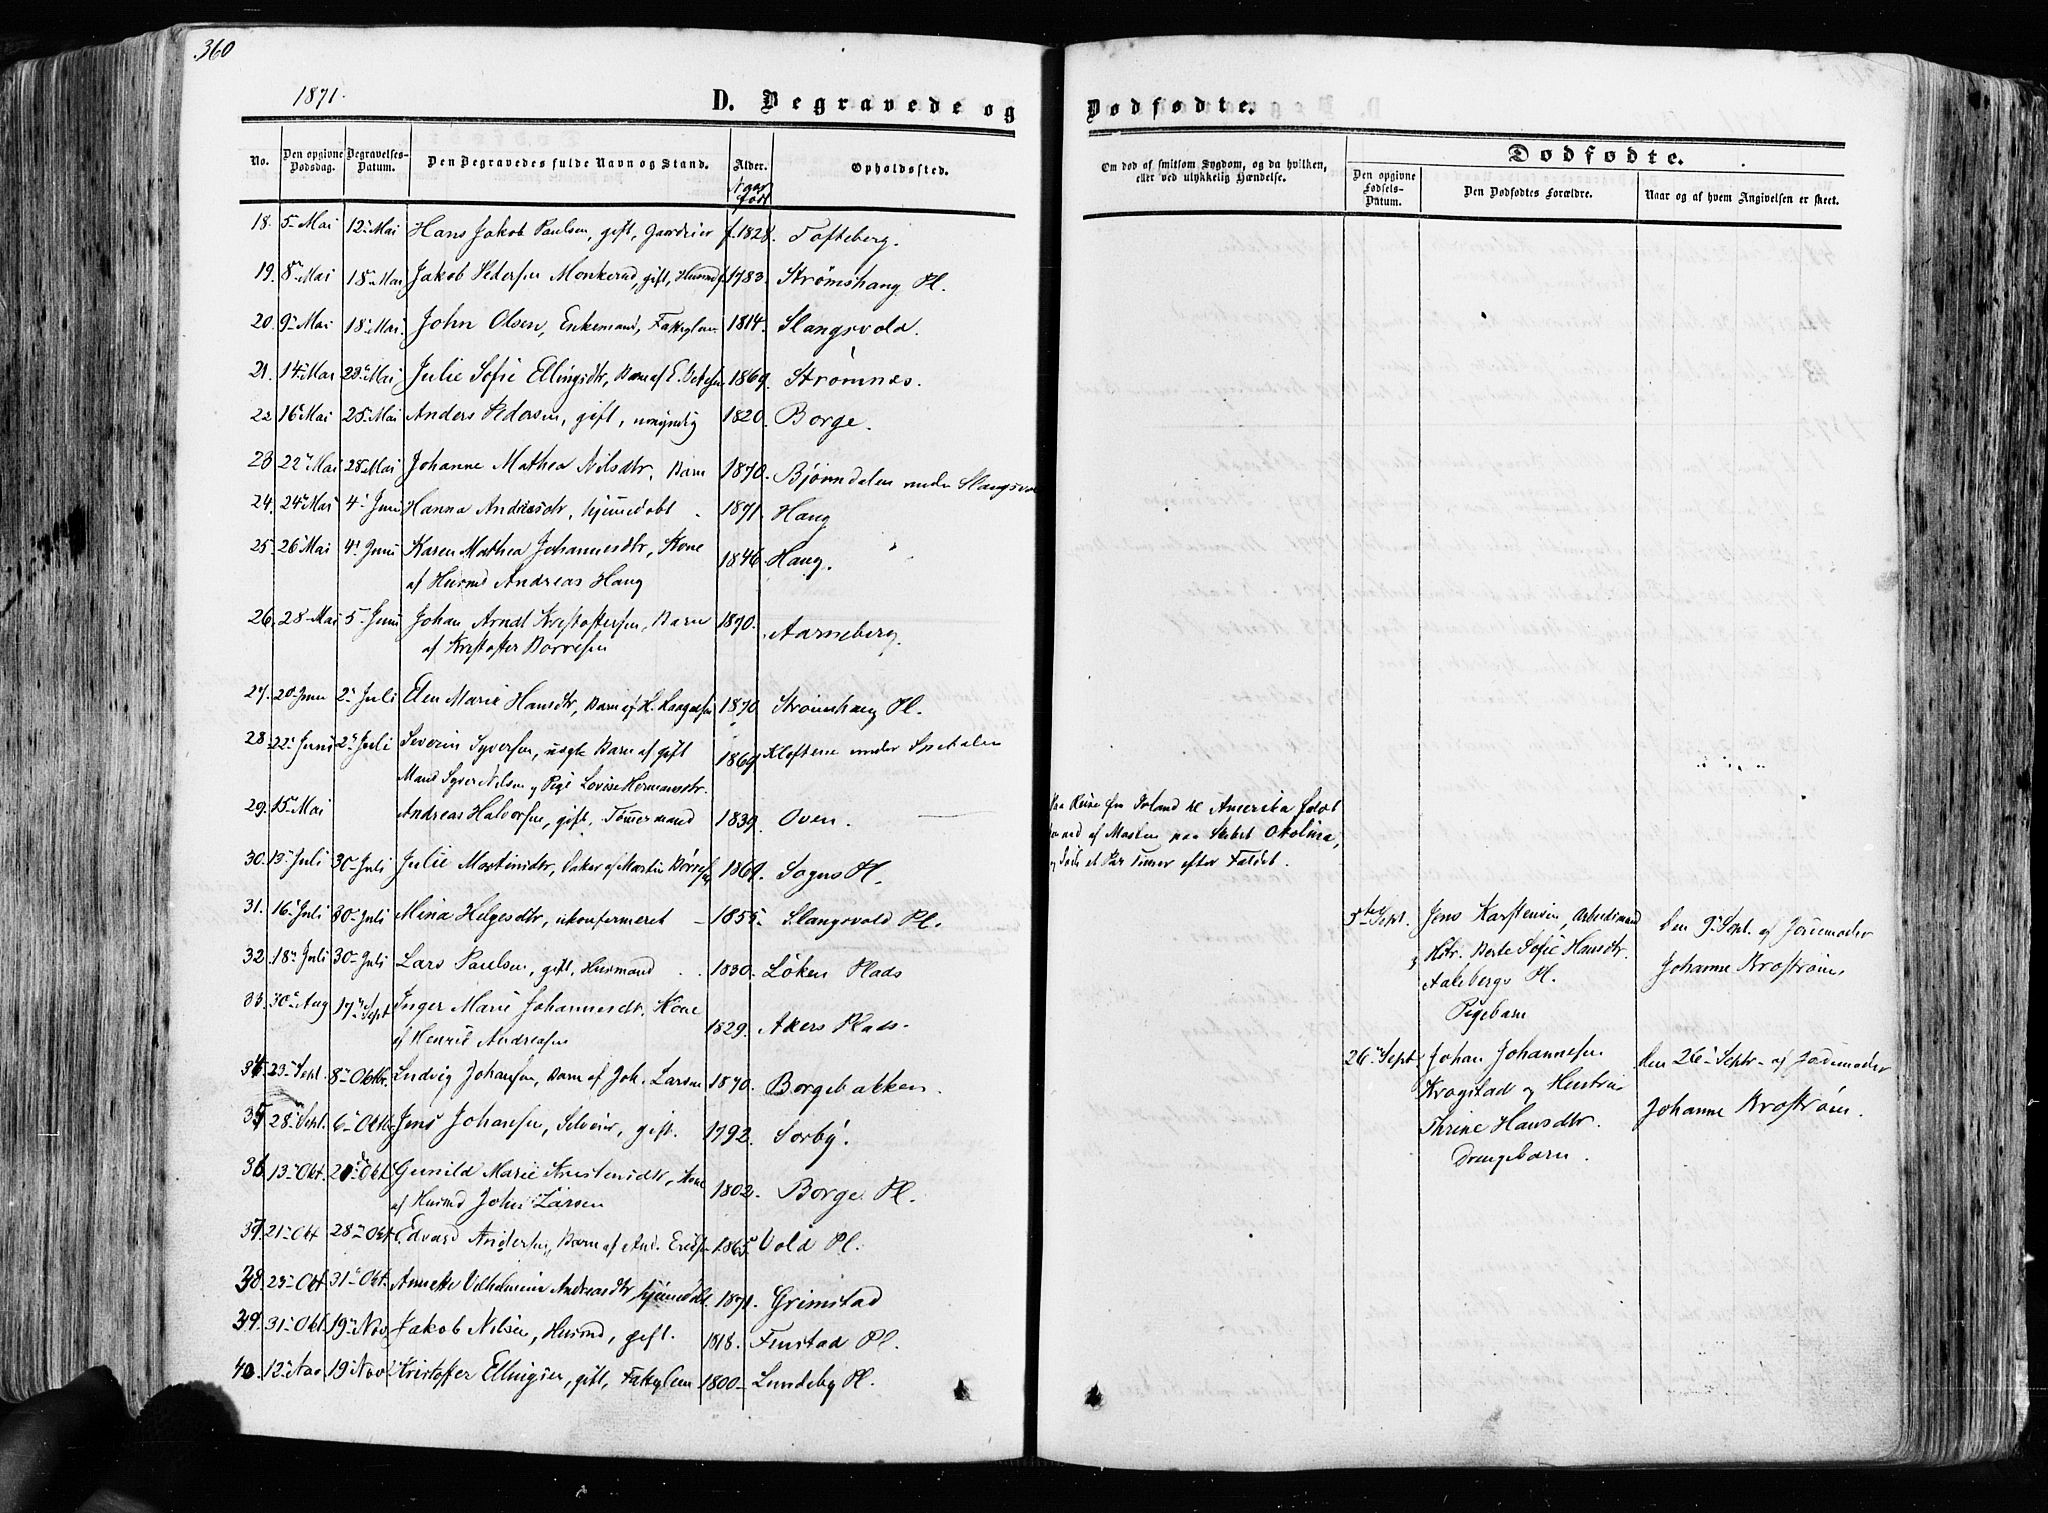 360
1871.
D. Begravede og Dødfødte.
No. Den opgivne Dødsdag. Begravelses-Datum. Den Begravedes fulde Navn og Stand. Alder. Naar født Opholdssted.
Om død af smitsom Sygdom, og da hvilken, eller ved ulykkelig Hændelse.
Dødfødte.
Den opgivne Fødsels-Datum. Den Dødfødtes Forældre. Naar og af hvem Angivelsen er skeet.
18. 5 Mai 12 Mai Hans Jakob Paulsen, gift, Gaardeier f. 1828. Tofteberg.
19. 8 Mai 18 Mai Jakob Pedersen Monkerud, gift, Husmd f. 1783. Strømshaug Pl.
20. 9 Mai 18 Mai John Olsen, Enkemand, Fattiglem 1814. Slangsvold.
21. 14 Mai 28 Mai Julie Sofie Ellingsdtr, Barn af E. 1869. Strømnes.
22 16 Mai 25 Mai Anders Pedersen, gift, umyndig 1820. Borge.
23 22 Mai 28 Mai Johanne Mathea Nilsdtr, Barn 1870. Bjørndalen under Slangsvo
24. 24 Mai 4 Juni Hanna Andreasdtr, hjemmedøbt 1871. Haug
25. 26 Mai 4 Juni Karen Mathea Johannesdtr, Kone
af Husmd Andreas Haug 1846. Haug.
26. 28 Mai 5 Juni Johan Arndt Kristoffersen, Barn
af Kristoffer Borresen 1870. Aarneberg.
27. 20 Juni 2 Juli Elen Marie Hansdtr, Barn af H. 1870. Strømshaug Pl.
28. 22 Juni 2 Juli Severin Syversen, uægte Barn af gift
Mand Syver Nilsen og Pige Lovise Hermansdtr. 1869 Kløftene under Spetalen
29. 15 Mai Andreas Halvorsen, gift, Tømmermand 1839. Oven.
Paa Reise fra Irland til Amerika faldt
ned af Masten paa Skibet Okolina,
og døde et Par Timer efter Faldet.
30. 13 Juli 30 Juli Julie Martinsdtr, Datter af Martin Børresen 1869. Sogns Pl.
31. 16 Juli 30 Juli Mina Helgesdtr, ukonfirmeret 1855. Slangsvold Pl.
32. 18 Juli 30 Juli Lars Paulsen, gift, Husmand 1830. Løken Plads
33. 30 Aug 17 Sept Inger Marie Johannesdtr. Kone
af Henrik Andreasen 1829. Akers Plads.
34. 23 Sept. 8 Oktbr. Ludvig Johansen, Barn af Joh. Larsen 1870. Borgebakken.
35 28 Sept. 6 Oktbr Jens Johansen, Selveier, gift. 1792. Sorby.
36 13 Okt. 20 Okt Gunild Marie Kristensdtr, Kone
af Husmd John Larsen 1802. Borge Pl.
37. 21 Okt 28 Okt Edvard Andersen, Barn af And. 1865 Vold Pl.
38. 23 Okt 31 Okt. Annette Vilhelmine Andreasdtr, hjemmedøbt. 1871. Grimstad
39. 31 Okt. 19 Nov Jakob Nilsen, Husmd, gift. 1818. Finstad Pl.
40. 12 Nov 19 Nov Kristoffer Ellingsen, gift, Fattiglem 1800 Lundeby Pl.
5te Sept. Jens Karstensen, Arbeidsmand
Hstr. Berte Sofie Hansdtr.
Aalebergs Pl.
Pigebarn
den 9 Sept. af Jordemoder
Johanne Brostrøm,
26 Sept. Johan Johannesen
Krogstad og Hustru
Thrine Hansdtr.
Drengebarn.
den 26 Septr. af Jordemoder
Johanne Brostrøm.